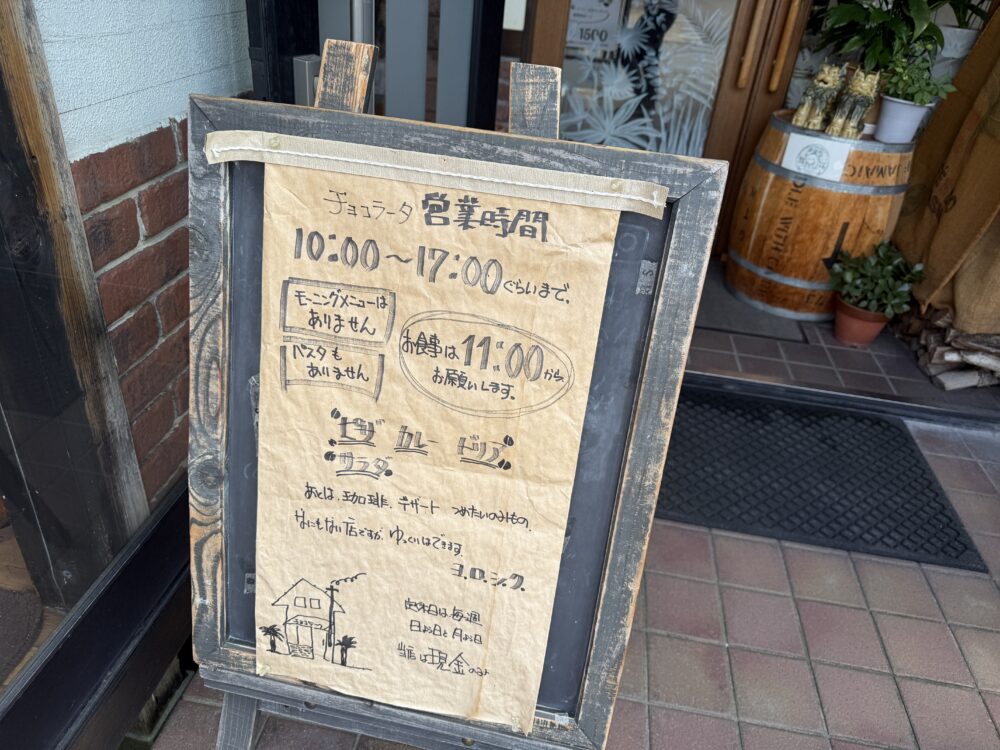 1500
チョコラータ 営業時間
10:00〜17:00ぐらいまで。
モーニングメニューは
ありません
パスタも
ありません
お食事は11:00から
お願いします。
"ピザ カレー ドリア"
"サラダ"
あとは、珈琲、デザート つめたいのみもの。
なにもない店ですが、ゆっくりはできます。
ヨ.ロ.シ.ク.
定休日は毎週
日よう日と月よう日
当店は現金のみ
JAMAIC